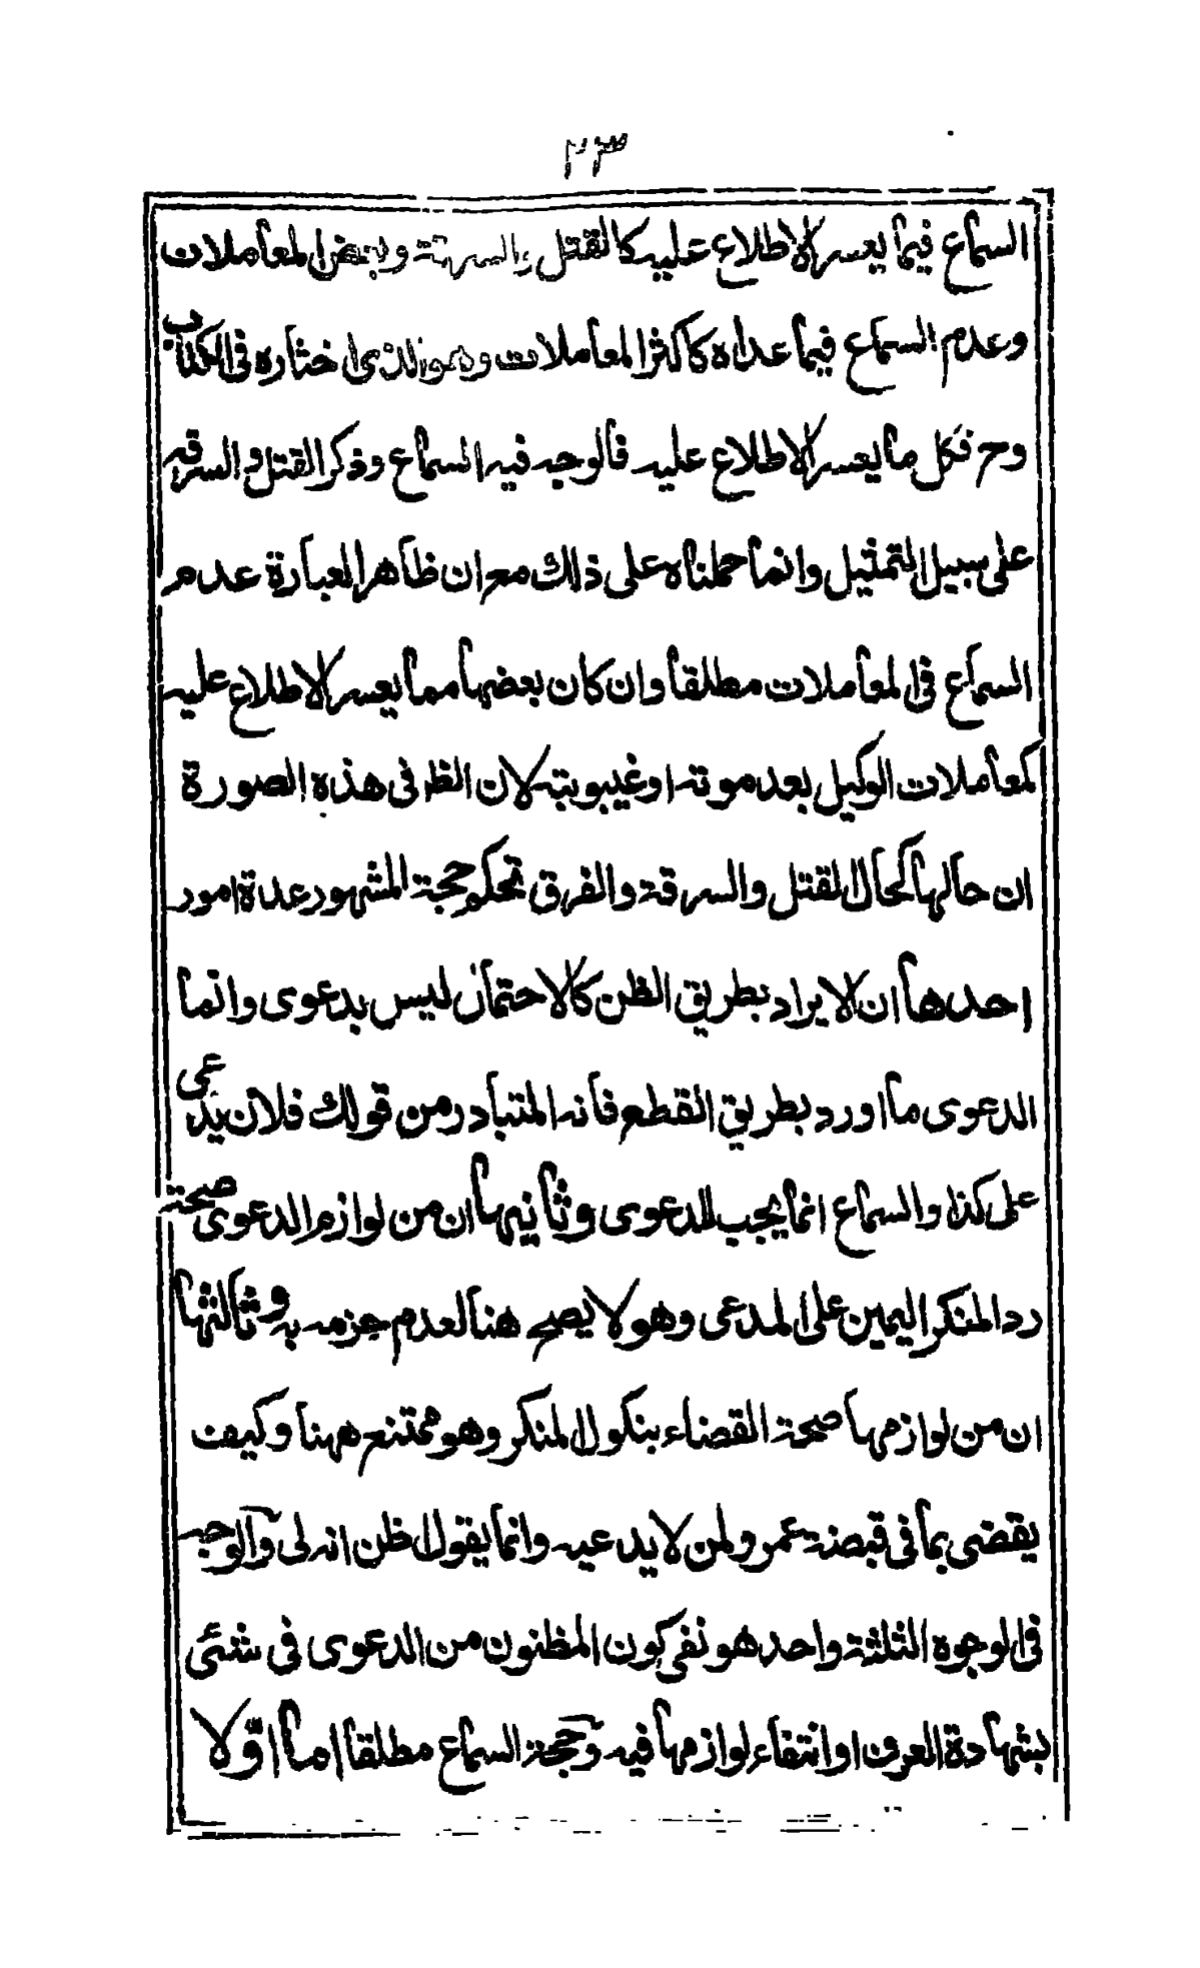 ٢٣
السماع فيما يعسر الاطلاع عليه كالقتل والسرقة وبعض المعاملات
وعدم السماع فيما عداه كاكثر المعاملات وهو الذى اختاره فى الكتاب
وح فكل ما يعسر الاطلاع عليه فالوجه فيه السماع وذكر القتل والسرقه
على سبيل التمثيل وانما حملناه على ذلك مع ان ظاهر العبارة عدم
السماع فى المعاملات مطلقا وان كان بعضها مما يعسر الاطلاع عليه
كمعاملات الوكيل بعد موته او غيبوبته لان الظ فى هذه الصورة
ان حالها كحال القتل والسرقة والفرق تحكم حجة المشهور عدة امور
احدها ان لا يراد بطريق الظن كالاحتمال ليس بدعوى وانما
الدعوى ما اورد بطريق القطع فانه المتبادر من قولك فلان يدعى
على كذا والسماع انما يجب للدعوى وثانيها ان من لوازم الدعوى صحة
رد المنكر اليمين على المدعى وهو لا يصح هنا لعدم جزمه به وثالثها
ان من لوازمها صحة القضاء بنكول المنكر وهو ممتنع ههنا وكيف
يقضى بما فى قبضة عمرو لمن لا يدعيه وانما يقول اظن انه لى والوجه
فى الوجوه الثلثة واحد هو نفى كون المظنون من الدعوى فى شئى
بشهادة العرف او انتفاء لوازمها فيه وحجة السماع مطلقا اما اوّلا